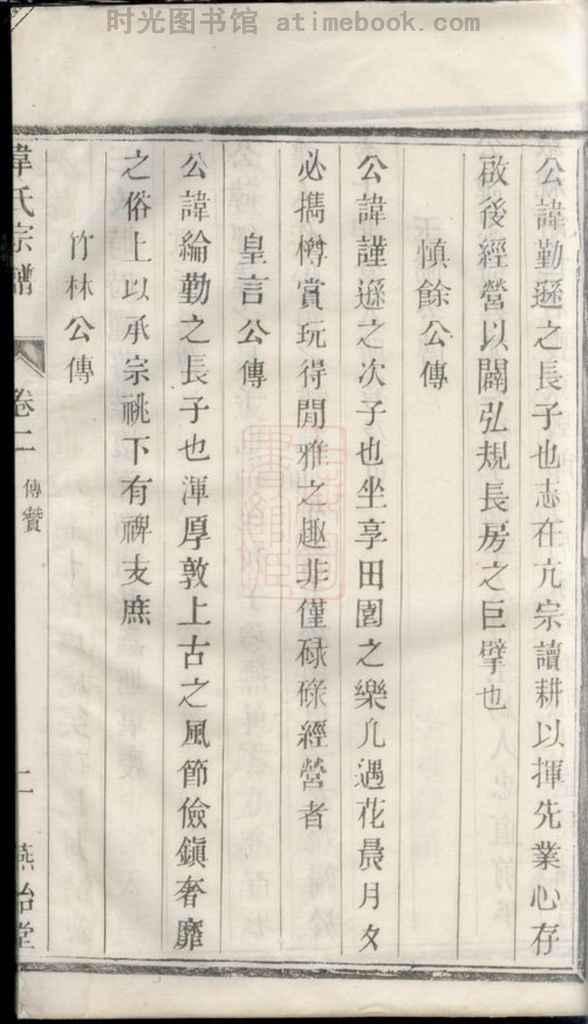 时光图书馆 - atimebook.com
公諱勤遜之長子也志在亢宗讀耕以揮先業心存
啟後經營以闢弘規長房之巨擘也
慎餘公傳
公諱謹遜之次子也坐享田園之樂凡遇花晨月夕
必擕樽賞玩得閒雅之趣非僅碌碌經營者
皇言公傳
公諱綸勤之長子也渾厚敦上古之風節儉鎮奢靡
之俗上以承宗祧下有禆支庶
竹林公傳
韋氏宗譜
卷二
傳贊
二
燕詒堂